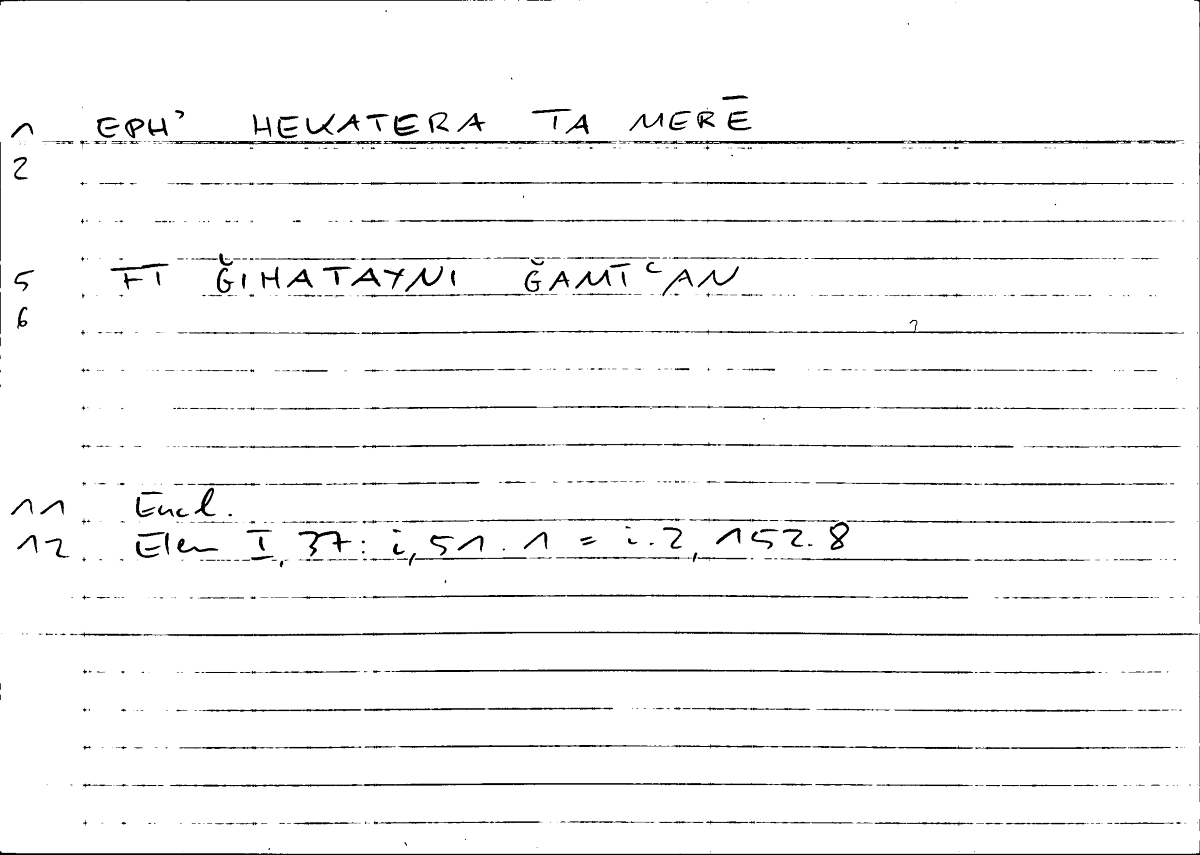 1 EPH' HEKATERA TA MERĒ
2
5 FĪ ǦIHATAYNI ǦAMĪʿAN
6
11 Eucl.
12 Elem I, 37: i, 51.1 = i.2, 152.8